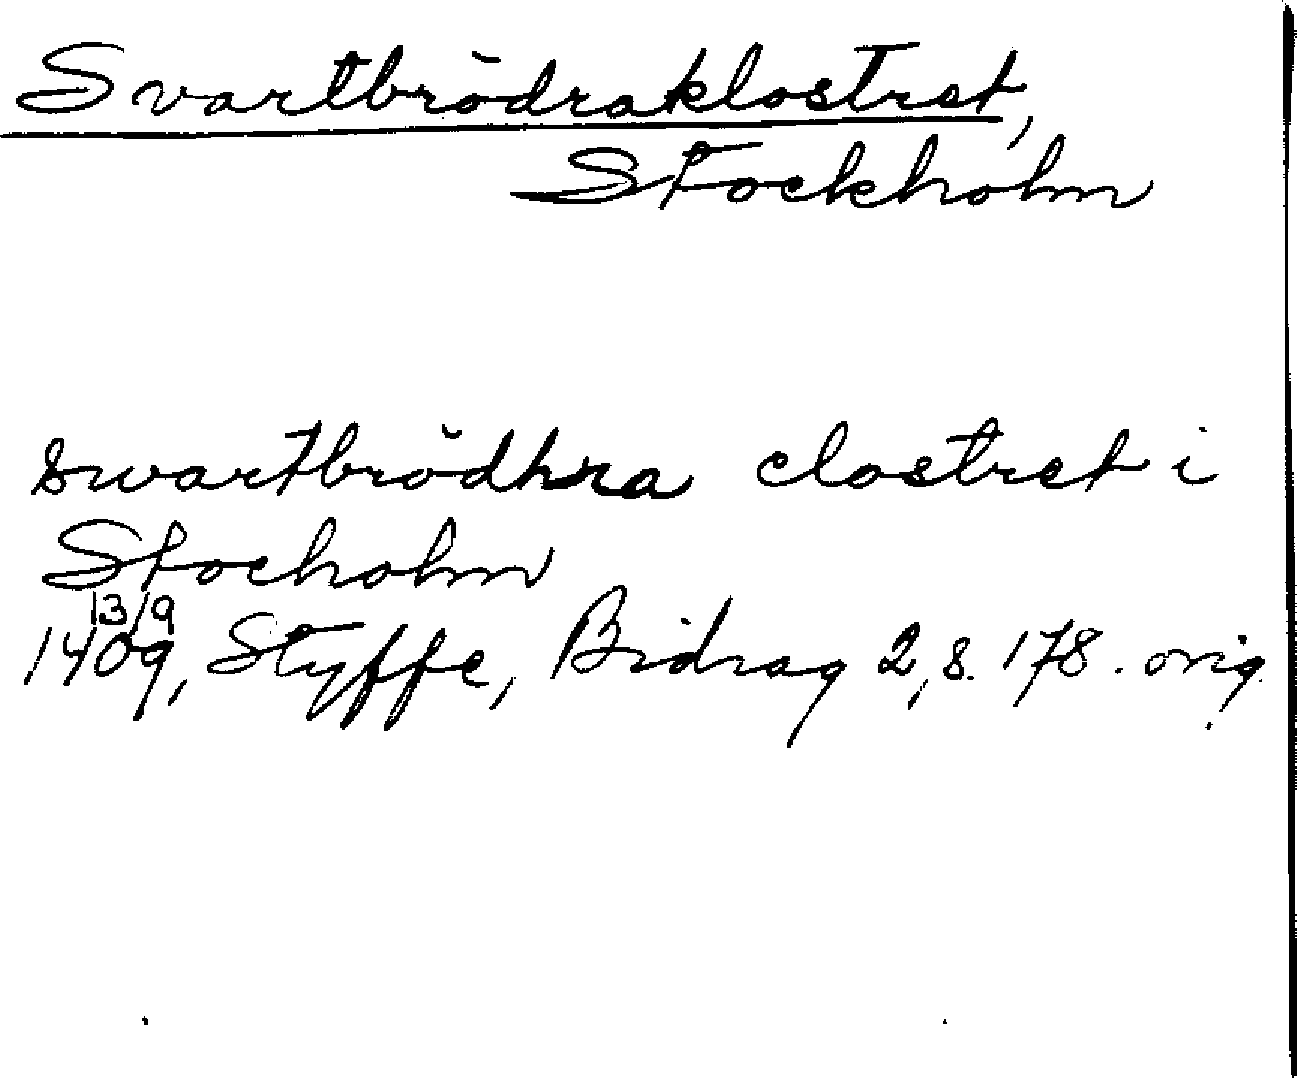 Svartbrödraklostret,
Stockholm
swartbrödhra clostret i
Stocholm
13/9
1409, Styffe, Bidrag 2, s. 178. orig.